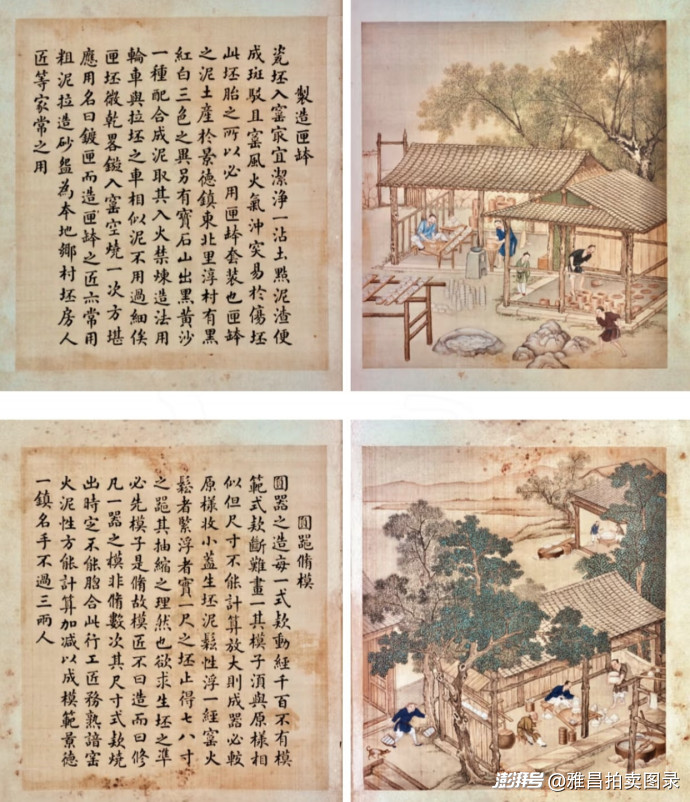 製造匣缽
瓷坯入窰㝡宜潔淨一沾土㸃泥渣便
成斑駁且窰風火氣沖突易於傷坯
此坯胎之所以必用匣缽套裝也匣缽
之泥土產於景德鎮東北里淳村有黑
紅白三色之異另有寶石山出黑黃沙
一種配合成泥取其入火禁煉造法用
輪車與拉坯之車相似泥不用過細俟
匣坯微乾畧鏇入窰空燒一次方堪
應用名曰鍍匣而造匣缽之匠亦常用
粗泥拉造砂盌為本地鄉村坯房人
匠等家常之用
圓器脩模
圓器之造每一式欵動經千百不有模
範式欵斷難畫一其模子須與原樣相
似但尺寸不能計算放大則成器必較
原樣收小蓋生坯泥鬆性浮一經窰火
鬆者緊浮者實一尺之坯止得七八寸
之器其抽縮之理然也欲求生坯之準
必先模子是脩故模匠不曰造而曰修
凡一器之模非脩數次其尺寸式欵燒
出時定不能脗合此行工匠務熟諳窰
火泥性方能計算加減以成模範景德
一鎮名手不過三兩人
澎湃号@雅昌拍卖图录